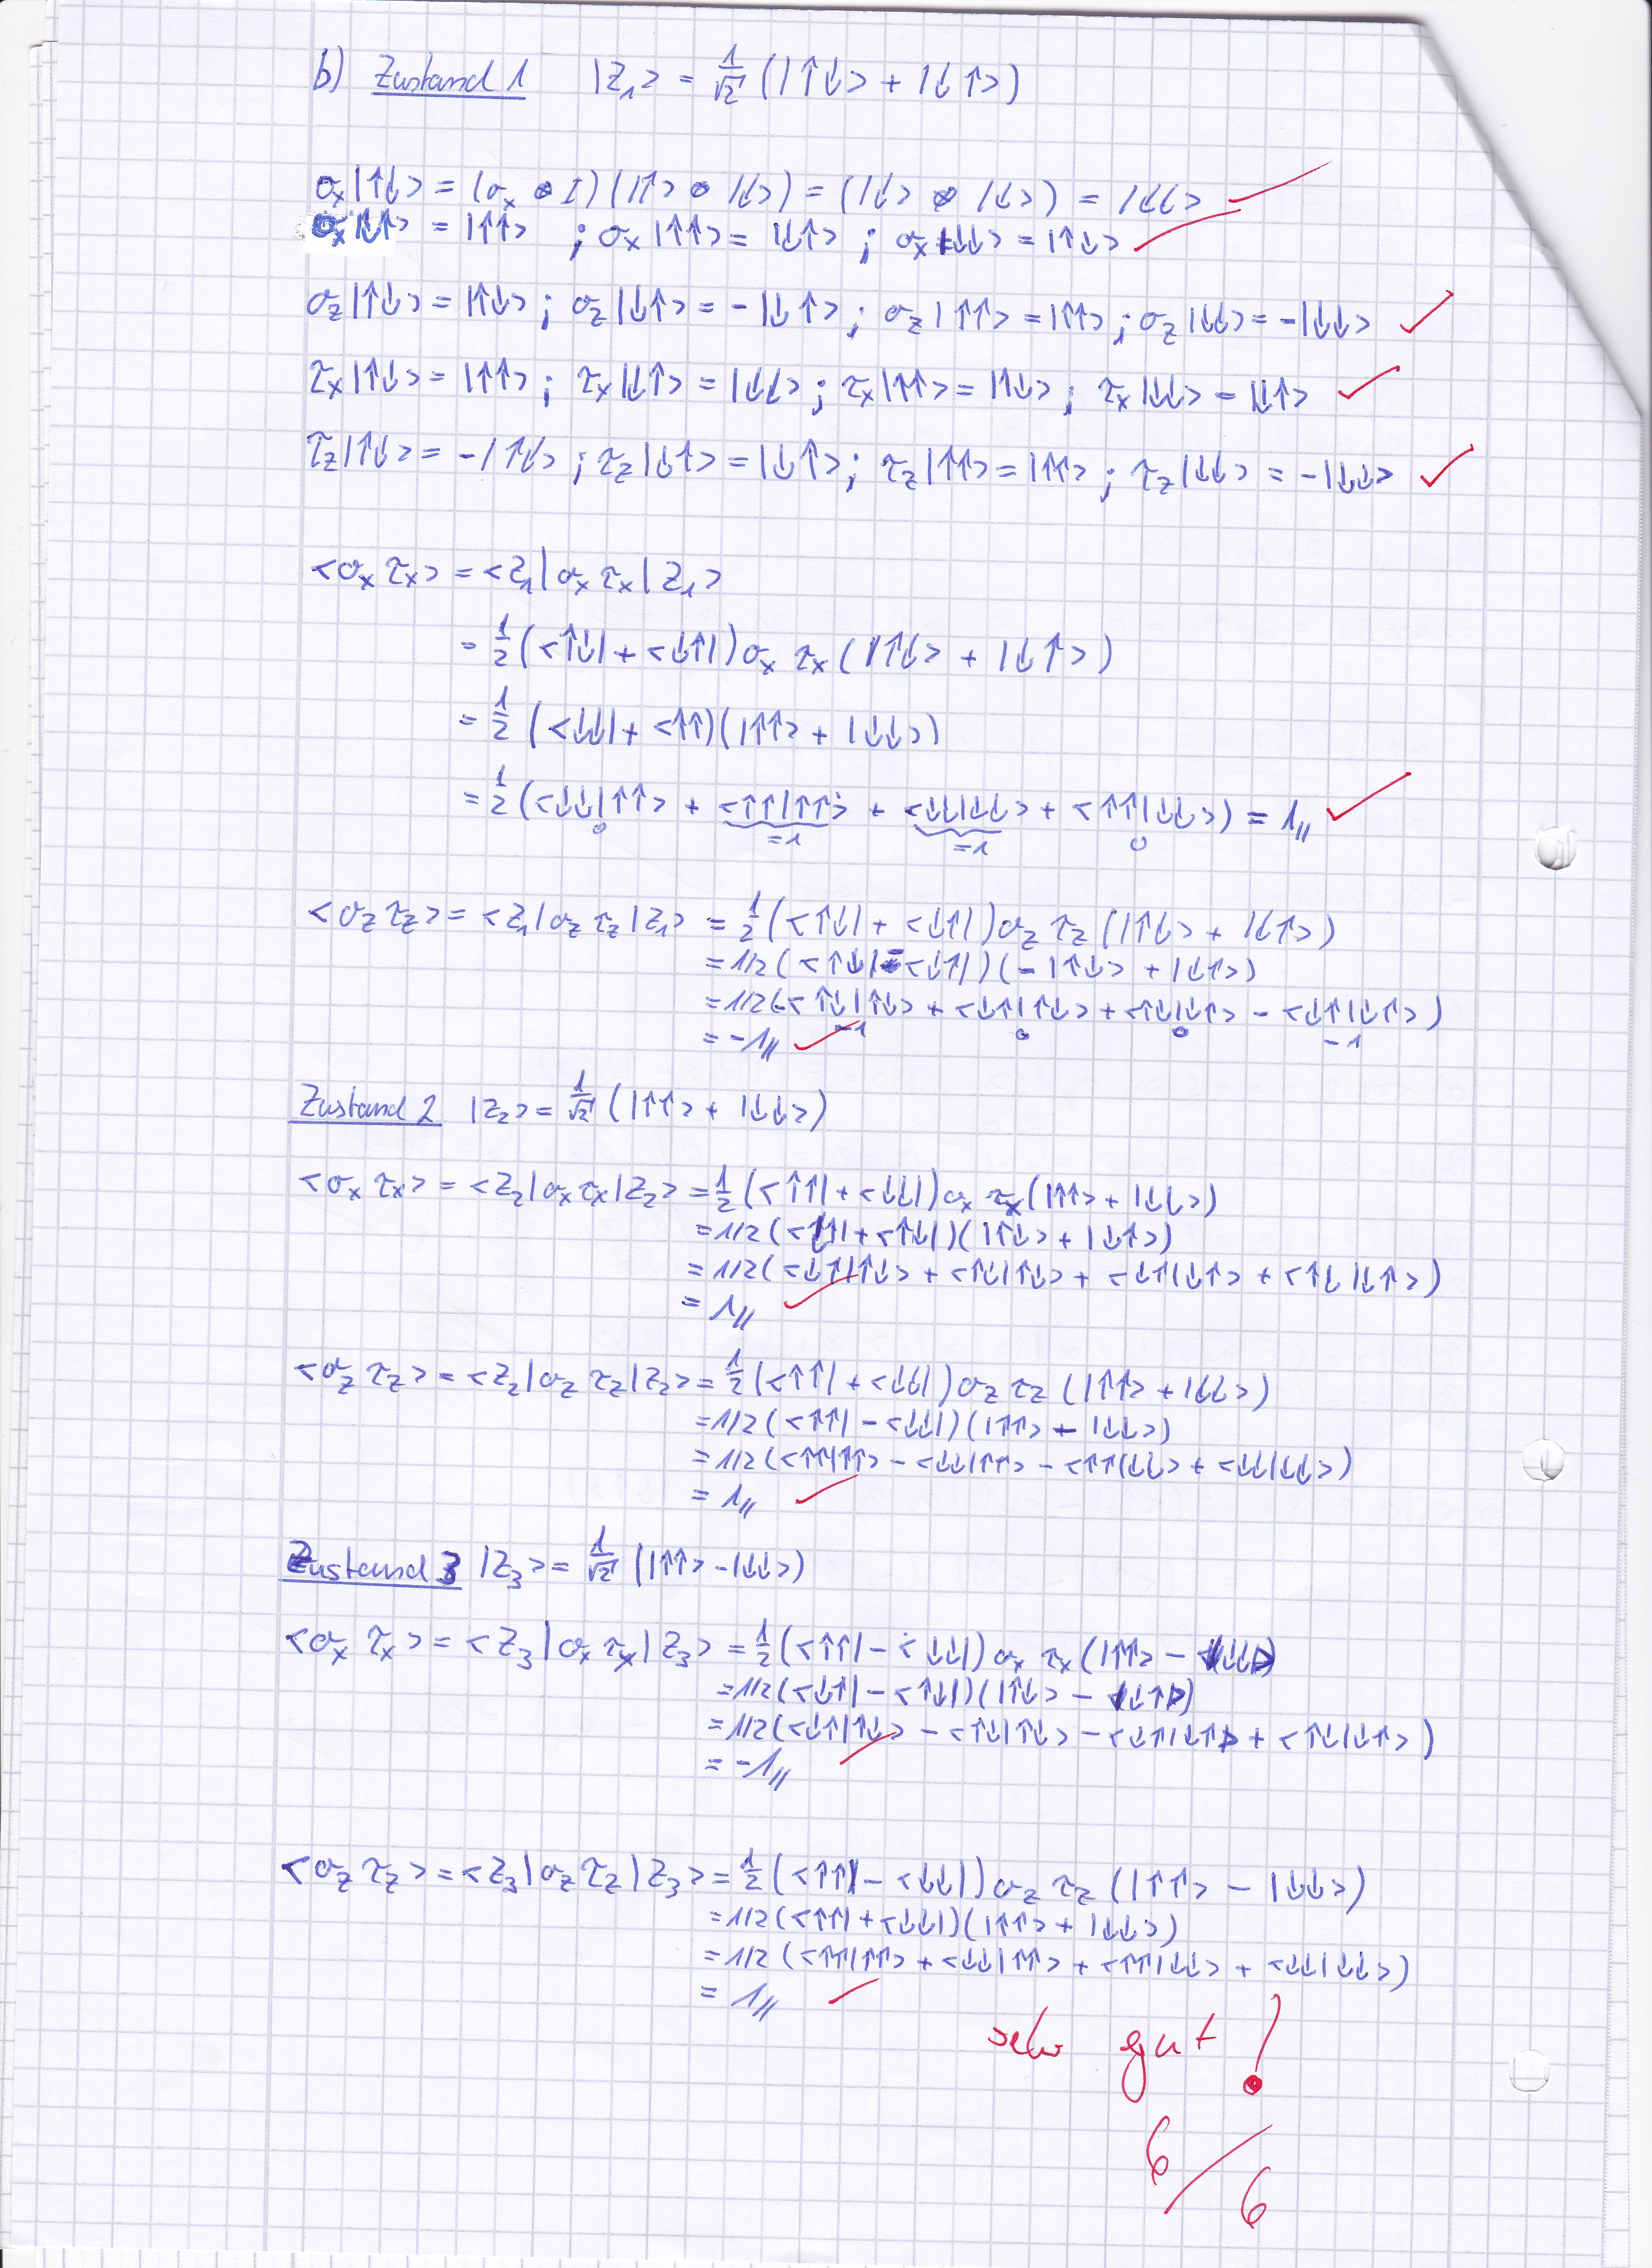 b) Zustand 1 |Z₁> = 1/√2 (|↑↓> + |↓↑>)
σₓ|↑↓> = (σₓ ⊗ I)(|↑> ⊗ |↓>) = (|↓> ⊗ |↓>) = |↓↓>
σₓ|↓↑> = |↑↑> ; σₓ|↑↑> = |↓↑> ; σₓ|↓↓> = |↑↓>
σ_z|↑↓> = |↑↓> ; σ_z|↓↑> = -|↓↑> ; σ_z|↑↑> = |↑↑> ; σ_z|↓↓> = -|↓↓>
τₓ|↑↓> = |↑↑> ; τₓ|↓↑> = |↓↓> ; τₓ|↑↑> = |↑↓> ; τₓ|↓↓> = |↓↑>
τ_z|↑↓> = -|↑↓> ; τ_z|↓↑> = |↓↑> ; τ_z|↑↑> = |↑↑> ; τ_z|↓↓> = -|↓↓>
<σₓ τₓ> = <Z₁|σₓ τₓ|Z₁>
= 1/2 (<↑↓| + <↓↑|) σₓ τₓ (|↑↓> + |↓↑>)
= 1/2 (<↓↓| + <↑↑)(|↑↑> + |↓↓>)
= 1/2 (<↓↓|↑↑> + <↑↑|↑↑> + <↓↓|↓↓> + <↑↑|↓↓>) = 1
0 =1 =1 0
<σ_z τ_z> = <Z₁|σ_z τ_z|Z₁> = 1/2 (<↑↓| + <↓↑|) σ_z τ_z (|↑↓> + |↓↑>)
= 1/2 (<↑↓| - <↓↑|)(-|↑↓> + |↓↑>)
= 1/2 (-<↑↓|↑↓> + <↓↑|↑↓> + <↑↓|↓↑> - <↓↑|↓↑>)
-1 0 0 -1
= -1
Zustand 2 |Z₂> = 1/√2 (|↑↑> + |↓↓>)
<σₓ τₓ> = <Z₂|σₓ τₓ|Z₂> = 1/2 (<↑↑| + <↓↓|) σₓ τₓ (|↑↑> + |↓↓>)
= 1/2 (<↓↑| + <↑↓|)(|↑↓> + |↓↑>)
= 1/2 (<↓↑|↑↓> + <↑↓|↑↓> + <↓↑|↓↑> + <↑↓|↓↑>)
= 1
<σ_z τ_z> = <Z₂|σ_z τ_z|Z₂> = 1/2 (<↑↑| + <↓↓|) σ_z τ_z (|↑↑> + |↓↓>)
= 1/2 (<↑↑| - <↓↓|)(|↑↑> - |↓↓>)
= 1/2 (<↑↑|↑↑> - <↓↓|↑↑> - <↑↑|↓↓> + <↓↓|↓↓>)
= 1
Zustand 3 |Z₃> = 1/√2 (|↑↑> - |↓↓>)
<σₓ τₓ> = <Z₃|σₓ τₓ|Z₃> = 1/2 (<↑↑| - <↓↓|) σₓ τₓ (|↑↑> - |↓↓>)
= 1/2 (<↓↑| - <↑↓|)(|↑↓> - |↓↑>)
= 1/2 (<↓↑|↑↓> - <↑↓|↑↓> - <↓↑|↓↑> + <↑↓|↓↑>)
= -1
<σ_z τ_z> = <Z₃|σ_z τ_z|Z₃> = 1/2 (<↑↑| - <↓↓|) σ_z τ_z (|↑↑> - |↓↓>)
= 1/2 (<↑↑| + <↓↓|)(|↑↑> + |↓↓>)
= 1/2 (<↑↑|↑↑> + <↓↓|↑↑> + <↑↑|↓↓> + <↓↓|↓↓>)
= 1
sehr gut!
6/6